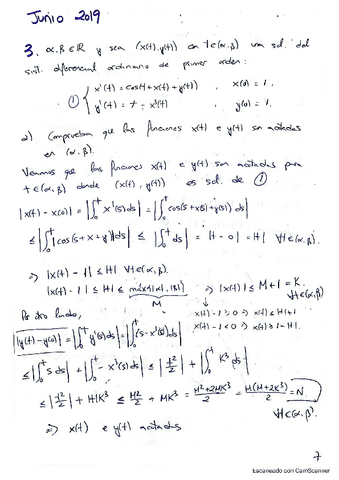 Junio 2019
3. α, β ∈ ℝ y sea (x(t), y(t)) en t ∈ (α, β) una sol. del
sist. diferencial ordinario de primer orden:
① { x'(t) = cos(t + x(t) + y(t)) , x(0) = 1.
y'(t) = t - x³(t) , y(0) = 1.
a) Comprueba que las funciones x(t) e y(t) son acotadas
en (α, β).
Veamos que las funciones x(t) e y(t) son acotadas para
t ∈ (α, β) donde (x(t), y(t)) es sol. de ①
|x(t) - x(0)| = |∫₀ᵗ x'(s) ds| = |∫₀ᵗ cos(s + x(s) + y(s)) ds|
≤ |∫₀ᵗ |cos(s + x + y)| ds| ≤ |∫₀ᵗ ds| = |t - 0| = |t| ∀t ∈ (α, β).
⇒ |x(t) - 1| ≤ |t| ∀t ∈ (α, β)
|x(t) - 1| ≤ |t| ≤ máx{|α|, |β|} ⇒ |x(t)| ≤ M + 1 = K.
M ∀t ∈ (α, β)
x(t) - 1 > 0 ⇒ x(t) ≤ |t| + 1
x(t) - 1 < 0 ⇒ x(t) ≥ 1 - |t|.
Por otro lado,
|y(t) - y(0)| = |∫₀ᵗ y'(s) ds| = |∫₀ᵗ (s - x³(s)) ds|
≤ |∫₀ᵗ s ds| + |∫₀ᵗ - x³(s) ds| ≤ |t²/2| + |∫₀ᵗ K³ ds|
≤ |t²/2| + |t| K³ ≤ M²/2 + MK³ = (M² + 2MK³)/2 = M(M + 2K³)/2 = N
∀t ∈ (α, β).
⇒ x(t) e y(t) acotadas
7
Escaneado con CamScanner